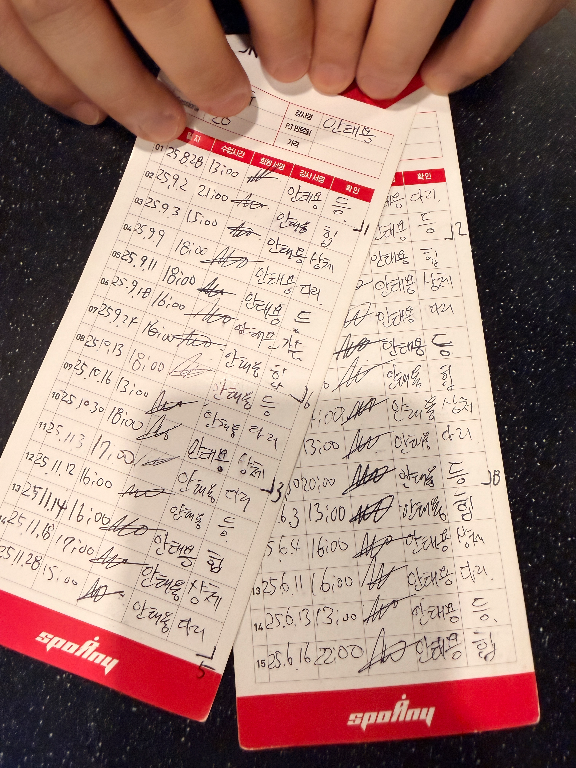 강사명 안태용
일자 수업시간 회원서명 강사서명 확인
01 25.8.28 13:00 안태용 등
02 25.9.2 21:00 안태용 힙
03 25.9.3 15:00 안태용 상체
04 25.9.9 18:00 안태용 다리
05 25.9.11 18:00 안태용 등
06 25.9.18 16:00
07 25.9.24 안태용 힙
08 25.10.13 18:00 안태용 등
25.10.16 13:00 안태용 다리
10 25.10.30 18:00 안태용 상체
11 25.11.3 17:00 안태용 다리
12 25.11.12 16:00 안태용 등
13 25.11.14 16:00 안태용 힙
25.11.18 안태용 상체
25.11.28 15:00 안태용 다리
5
spoany
확인
다리
안태용 등
2
안태용 힙
안태용 상체
안태용 다리
안태용 등
안태용 힙
안태용 상체
안태용 다리
20:00 안태용 등
6.3 13:00 안태용 힙
5.6.4 16:00 안태용 상체
13 25.6.11 16:00 안태용 다리.
14 25.6.13 13:00 안태용 등.
15 25.6.16 22:00 안태용 힙
spoany